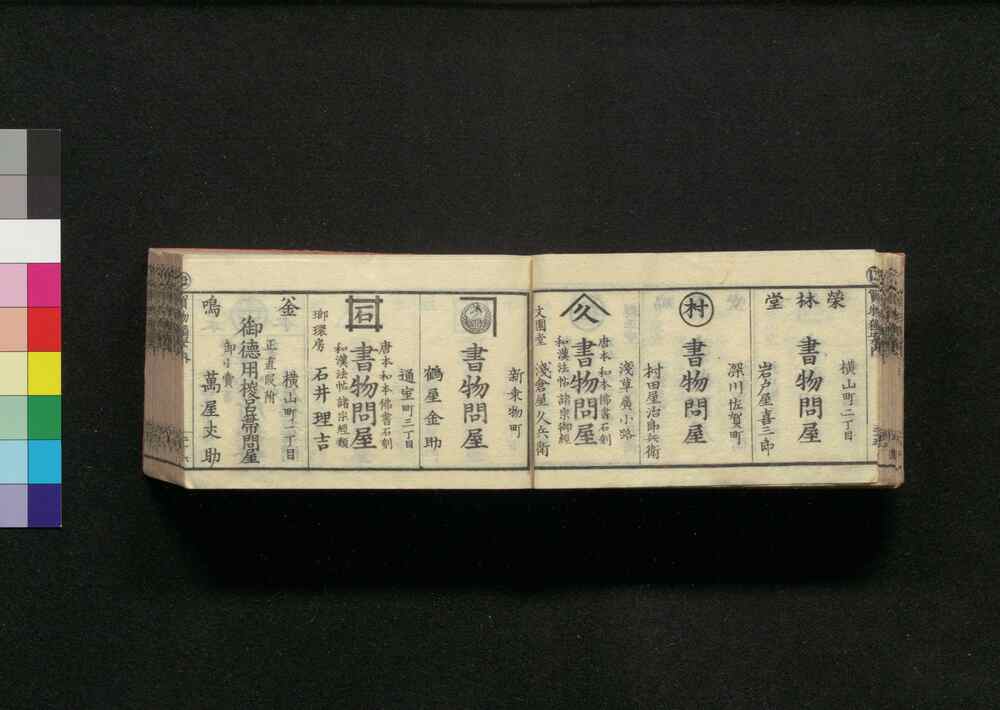 横山町二丁目
榮林堂
書物問屋
岩戸屋喜三郎
深川佐賀町
村
書物問屋
村田屋治郎兵衛
淺草廣小路
久
唐本和本佛書石刻
書物問屋
和漢法帖諸宗御經
文圍堂
淺倉屋久兵衛
新乗物町
書物問屋
鶴屋金助
通室町三丁目
唐本和本佛書石刻
石
書物問屋
和漢法帖諸宗經類
瑯環房
石井理吉
横山町二丁目
釜
正直
附
御徳用
問屋
鳴
萬屋丈助